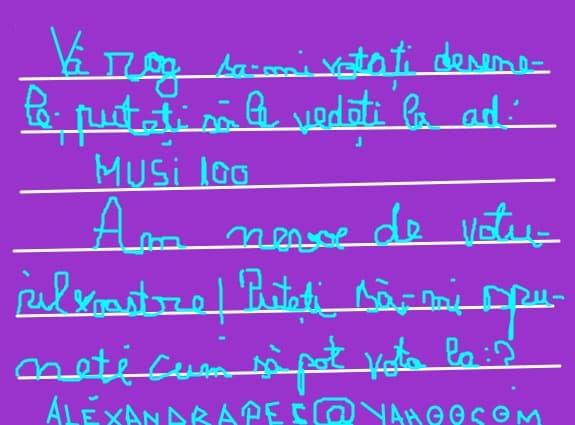 Vă rog să-mi votați desene-
le; puteți să le vedeți la ad:
MUSI 100
Am nevoe de votu-
rilevoastre! Puteți să-mi spu-
neti cum să pot vota la:?
ALEXANDRAPES@YAHOO.COM